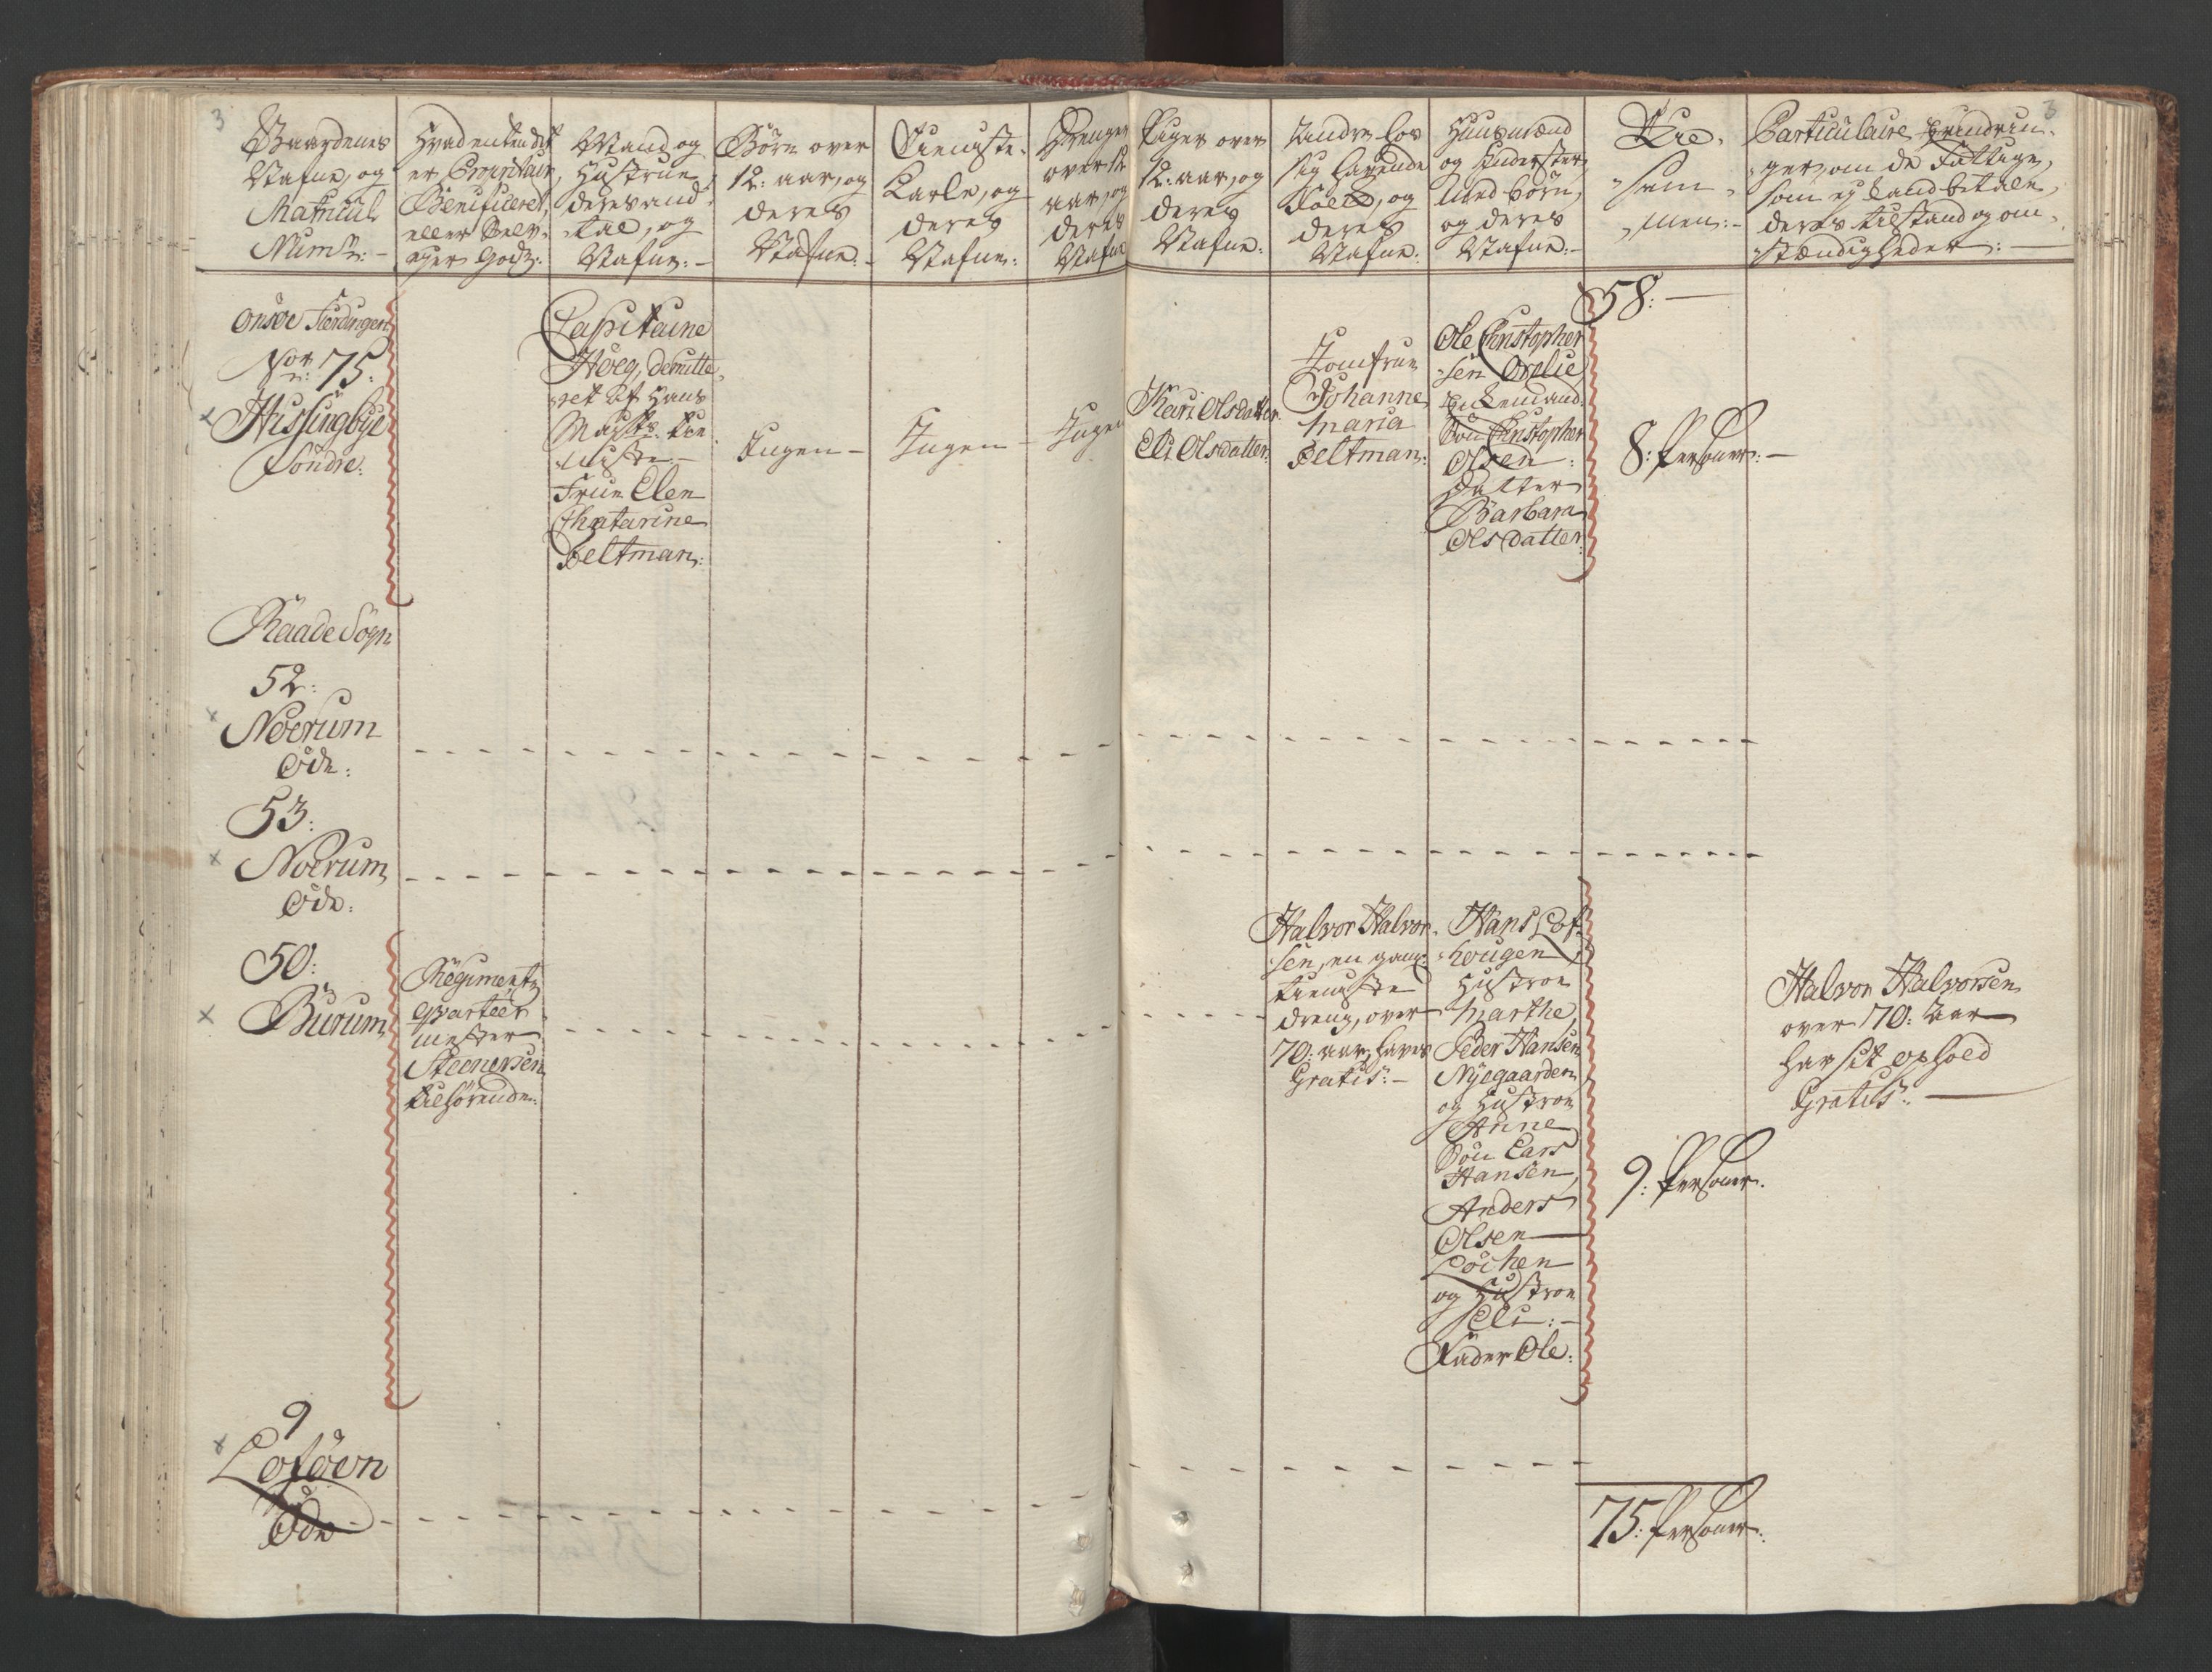 3
Gaardenes
Nafne, og
Matricul
Num:
Hvad enten det
er Propritair,
Beneficeret,
eller Selv-
eyer Godz:
Mand og
Hustrue,
deres and-
tal, og
Nafne:
Børn over
12: aar, og
deres
Nafne:
Tieniste-
Karle, og
deres
Nafne:
Drenge
over 12
aar, og
deres
Nafne
Piger over
12: aar, og
deres
Nafne:
Andre hos
sig havende
Folk, og
deres
Nafne:
Huusmænd
og Inderster,
med børn,
og deres
Nafne:
Til-
sam-
men:
3
Particulaire Erindrin-
ger, om de Fattige,
som ey kand betale,
deres tilstand og om-
stændigheder:
Onsøe Fierdingen
Nor: 75:
x Hissingbye
Søndre:
Capitaine
Höeg, demitte-
ret af Hans
Maysts: tie-
niste
Frue Elen
Chatarine
Feltman:
Ingen
Ingen
Ingen
Kari Olsdatter
Eli Olsdatter:
Jomfrue
Johanne
Maria
Feltman:
Ole Christopher
sen Ørelie
Enkemand
Søn Christopher
Olsen:
Datter
Barbara
Olsdatter:
58:
8: Personer:
Raade Sogn
52:
x Nøerum
Øde:
53:
x Nøerum
Øde:
50:
x Burum
Regimentz
qvarteer-
mester
Steenersen
tilhørende:
Halvor Halvor-
sen, en gaml:
tieniste
dreng, over
70: aar, haves
Gratis:
Hans Lof-
hougen
Hustroe
Marthe,
Peder Hansen
Nyegaarden
og Hustroe
Anne
Søn Lars
Hansen,
Anders
Olsen
Løchen
og Hustroe
Eli:
Fader Ole:
9: Personer.
Halvor Halvorsen
over 70: Aar
har sit ophold
Gratis:
9
x Loføen
Øde
75: Personer: